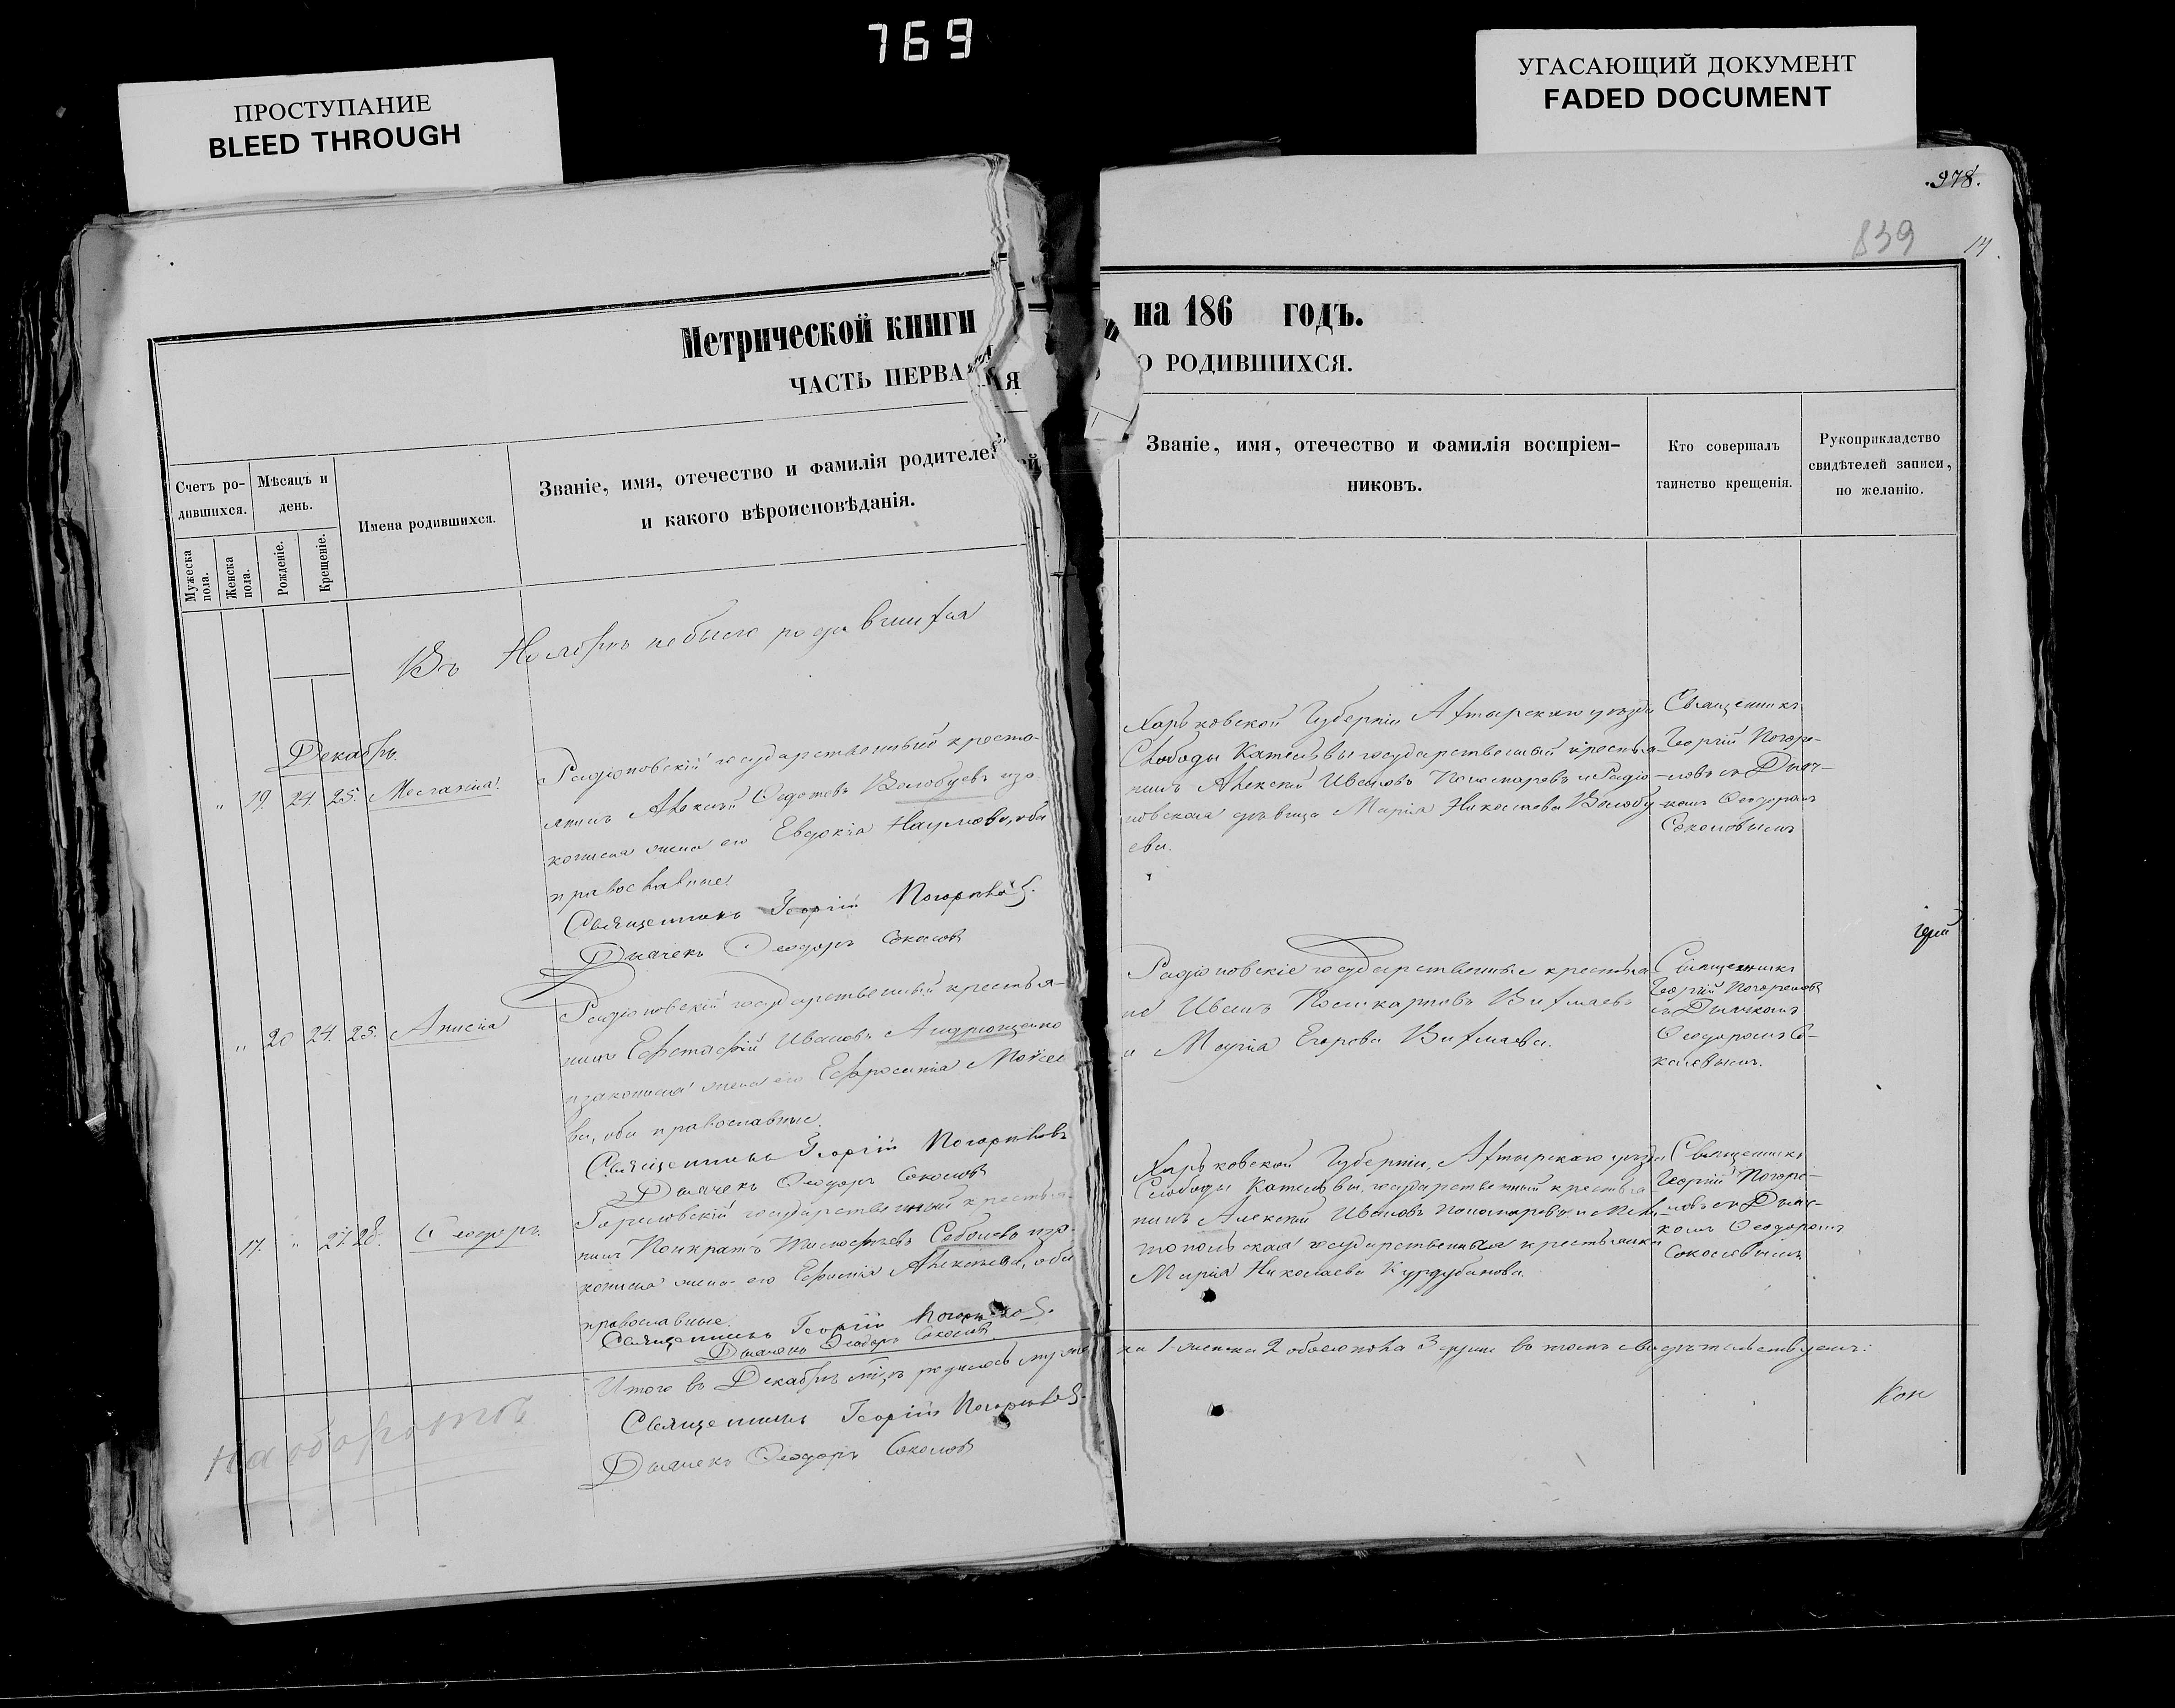 769
ПРОСТУПАНИЕ
BLEED THROUGH
УГАСАЮЩИЙ ДОКУМЕНТ
FADED DOCUMENT
.978.
839
Метрической книги
на 186 годъ.
ЧАСТЬ ПЕРВАЯ
О РОДИВШИХСЯ.
Счетъ ро-
дившихся.
Мѣсяцъ и
день.
Имена родившихся.
Званіе, имя, отечество и фамилія родителей
и какого вѣроисповѣданія.
Мужеска
пола.
Женска
пола.
Рожденіе.
Крещеніе.
Званіе, имя, отечество и фамилія воспріем-
никовъ.
Кто совершалъ
таинство крещенія.
Рукоприкладство
свидѣтелей записи,
по желанію.
Въ Ноябрѣ небыло родившихся
Декабрь.
„ 19. 24. 25. Меланія
Радіоновскій государственный крестья-
нинъ Алексѣй Ѳедотовъ Волобуевъ иза
конная жена его Евдокія Наумова, оба
православные.
Священникъ Георгій
Дьячекъ Ѳеодоръ Соколовъ
Харьковской Губерніи Ахтырскаго уѣзда
Слободы Котельвы государственный крестья-
нинъ Алексѣй Ивановъ Пономаревъ и Радіо-
новская дѣвица Марія Николаева Волобу-
ева.
Священникъ
Георгій
съ Дьяч-
комъ Ѳеодоромъ
Соколовымъ
„ 20 24. 25. Анисія
Радіоновскій государственный крестья-
нинъ Евстафій Ивановъ Андрющенко
изаконная жена его Ефросинія Моисее
ва, оба православные.
Священникъ Георгій
Дьячекъ Ѳеодоръ Соколовъ
Радіоновскіе государственные крестья-
не Иванъ Поликарповъ
и Марія Егорова
Священникъ
Георгій
съ Дьячкомъ
Ѳеодоромъ Со-
коловымъ.
17. „ 27. 28. Ѳеодоръ.
Гореловскій государственный крестья-
нинъ Панкратъ Соболевъ иза-
конная жена его Алексѣева, оба
православные.
Священникъ Георгій
Дьячекъ Ѳеодоръ Соколовъ
Харьковской Губерніи, Ахтырскаго уѣзда
Слободы Котельвы, государственный крестья-
нинъ Алексѣй Ивановъ Пономаревъ и Мели-
топольская государственная крестьянка
Марія Николаева Курдубанова.
Священникъ
Георгій
съ Дьяч-
комъ Ѳеодоромъ
Соколовымъ
Итого въ Декабрѣ мѣсяцѣ родилось муже
ска 1 женска 2 обоего пола 3 души въ томъ свидѣтельствуемъ:
Священникъ Георгій
Дьячекъ Ѳеодоръ Соколовъ
На оборотѣ